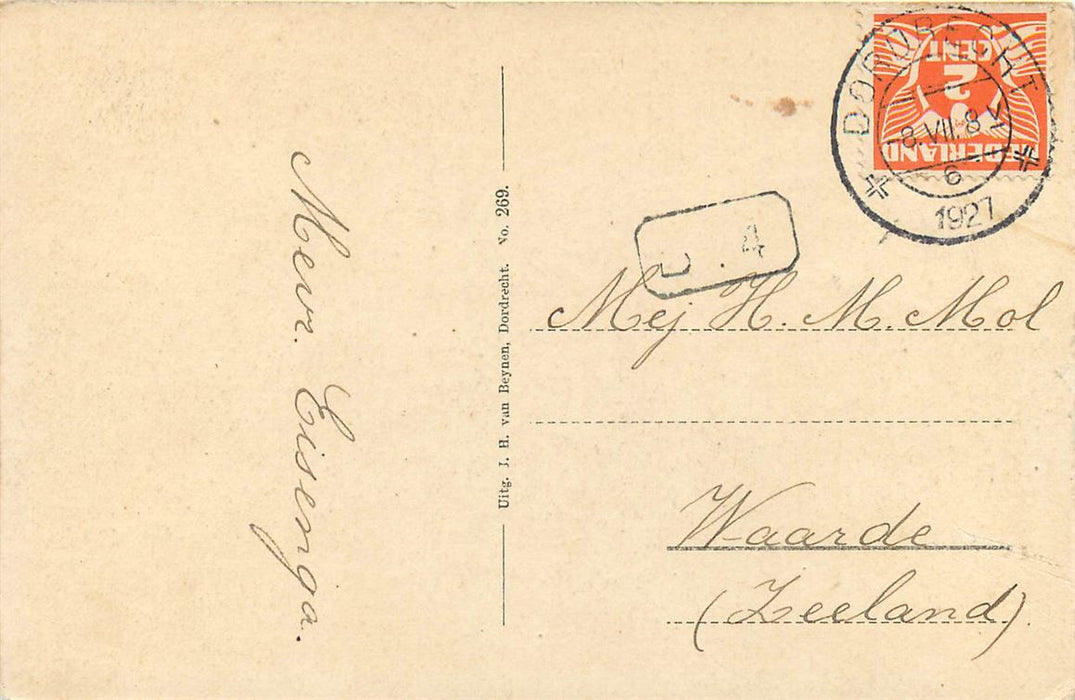 Mevr. Eisenga.
Uitg. J. H. van Beynen, Dordrecht. No. 269.
CENT
2
NEDERLAND
DORDRECHT
8.VII.8
1927
4
Mej H. M. Mol
Waarde
(Zeeland)